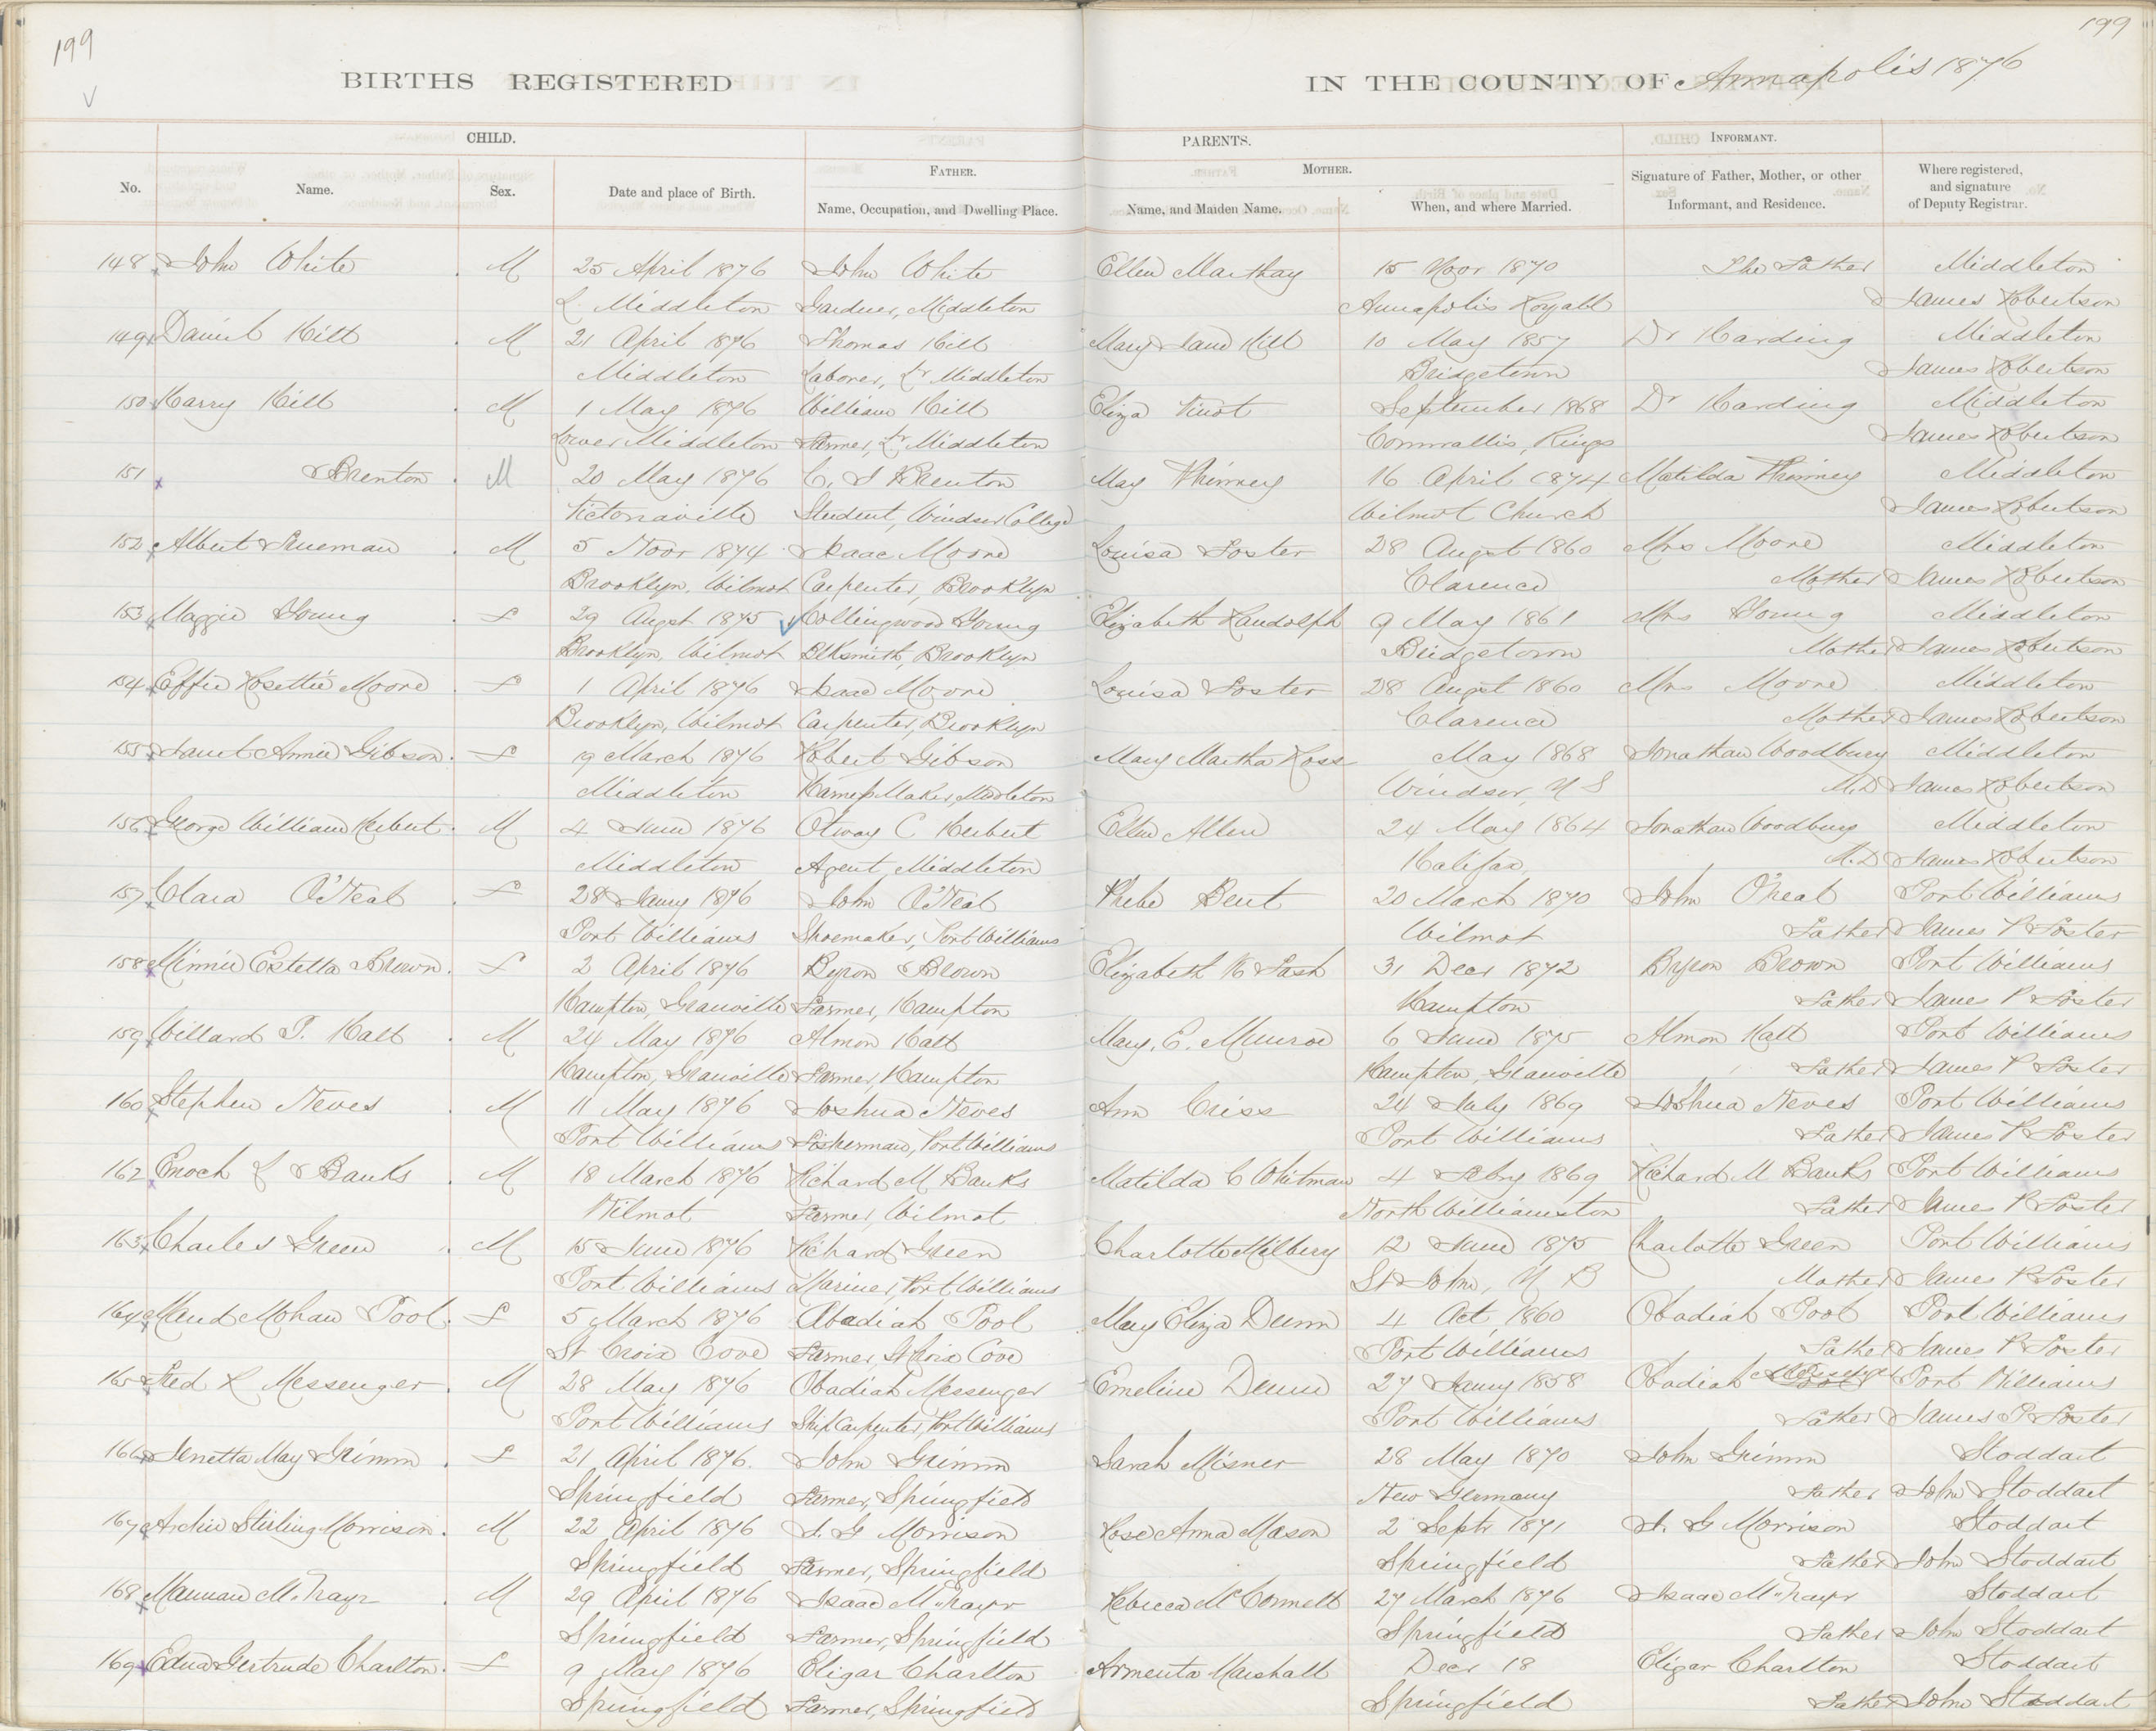 199
199
BIRTHS REGISTERED IN THE COUNTY OF Annapolis 1876
CHILD. PARENTS. INFORMANT.
FATHER. MOTHER.
No. Name. Sex. Date and place of Birth. Name, Occupation, and Dwelling Place. Name, and Maiden Name. When, and where Married. Signature of Father, Mother, or other Informant, and Residence. Where registered, and signature of Deputy Registrar.
148 John White M 25 April 1876 John White Ellen 15 Novr 1870 The Father Middleton
L. Middleton Gardner, Middleton Annapolis Royall James Robertson
149 Daniel Hill M 21 April 1876 Thomas Hill Mary Jane Hill 10 May 1857 Dr Harding Middleton
Middleton Laborer, Lr Middleton Bridgetown James Robertson
150 Harry Hill M 1 May 1876 William Hill Eliza September 1868 Dr Harding Middleton
Lower Middleton Farmer, Lr Middleton Cornwallis, Kings James Robertson
151 Brenton M 20 May 1876 C. S Brenton May Phinney 16 April 1874 Matilda Phinney Middleton
Victoriaville Student, Windsor College Wilmot Church James Robertson
152 Albert Trueman M 5 Novr 1874 Isaac Moore Louisa Foster 28 Augst 1860 Mrs Moore Middleton
Brooklyn, Wilmot Carpenter, Brooklyn Clarence Mother James Robertson
153 Maggie Young F 29 Augst 1875 Collingwood Young Elizabeth Randolph 9 May 1861 Mrs Young Middleton
Brooklyn, Wilmot Blksmith, Brooklyn Bridgetown Mother James Robertson
154 Effie Rosettie Moore F 1 April 1876 Isaac Moore Louisa Foster 28 Augst 1860 Mrs Moore Middleton
Brooklyn, Wilmot Carpenter, Brooklyn Clarence Mother James Robertson
155 Janet Annie Gibson F 19 March 1876 Robert Gibson Mary Martha Ross May 1868 Jonathan Woodbury Middleton
Middleton Harness Maker, Middleton Windsor, N S M.D James Robertson
156 George William Herbert M 4 June 1876 Otway C Herbert Ellen Allen 24 May 1864 Jonathan Woodbury Middleton
Middleton Agent, Middleton Halifax M.D James Robertson
157 Clara O'Neal F 28 Jany 1876 John O'Neal Phebe Bent 20 March 1870 John O'neal Port Williams
Port Williams Shoemaker, Port Williams Wilmot Father James P Foster
158 Minnie Estella Brown F 2 April 1876 Byron Brown Elizabeth H Fash 31 Decr 1872 Byron Brown Port Williams
Hampton, Granville Farmer, Hampton Hampton Father James P Foster
159 Willard P. Hall M 24 May 1876 Almon Hall Mary. E. Munroe 6 June 1875 Almon Hall Port Williams
Hampton, Granville Farmer, Hampton Hampton, Granville Father James P Foster
160 Stephen Neves M 11 May 1876 Joshua Neves Ann Criss 24 July 1869 Joshua Neves Port Williams
Port Williams Fisherman, Port Williams Port Williams Father James P Foster
162 Enoch L Banks M 18 March 1876 Richard M Banks Matilda C Whitman 4 Feby 1869 Richard M Banks Port Williams
Wilmot Farmer, Wilmot North Williamston Father James P Foster
163 Charles Green M 15 June 1876 Richard Green Charlotte Milbery 12 June 1875 Charlotte Green Port Williams
Port Williams Mariner, Port Williams St John, N B Mother James P Foster
164 Maud Mohan Pool F 5 March 1876 Obadiah Pool Mary Eliza Dunn 4 Oct 1860 Obadiah Pool Port Williams
St Croix Cove Farmer, St Croix Cove Port Williams Father James P Foster
165 Fred R Messenger M 28 May 1876 Obadiah Messenger Emeline Dunn 27 Jany 1858 Obadiah Messenger Port Williams
Port Williams Ship Carpenter, Port Williams Port Williams Father James P Foster
166 Jenetta May Grimm F 21 April 1876. John Grimm Sarah Misner 28 May 1870 John Grimm Stoddart
Springfield Farmer, Springfield New Germany Father John Stoddart
167 Archie Stirling Morrison M 22 April 1876 J. G Morrison Rose Anna Mason 2 Septr 1871 J. G Morrison Stoddart
Springfield Farmer, Springfield Springfield Father John Stoddart
168 M 29 April 1876 Isaac Rebecca McConnell 27 March 1876 Isaac Stoddart
Springfield Farmer, Springfield Springfield Father John Stoddart
169 Edna Gertrude Charlton F 9 May 1876 Eligar Charlton Armenta Marshall Decr 18 Eligar Charlton Stoddart
Springfield Farmer, Springfield Springfield Father John Stoddart